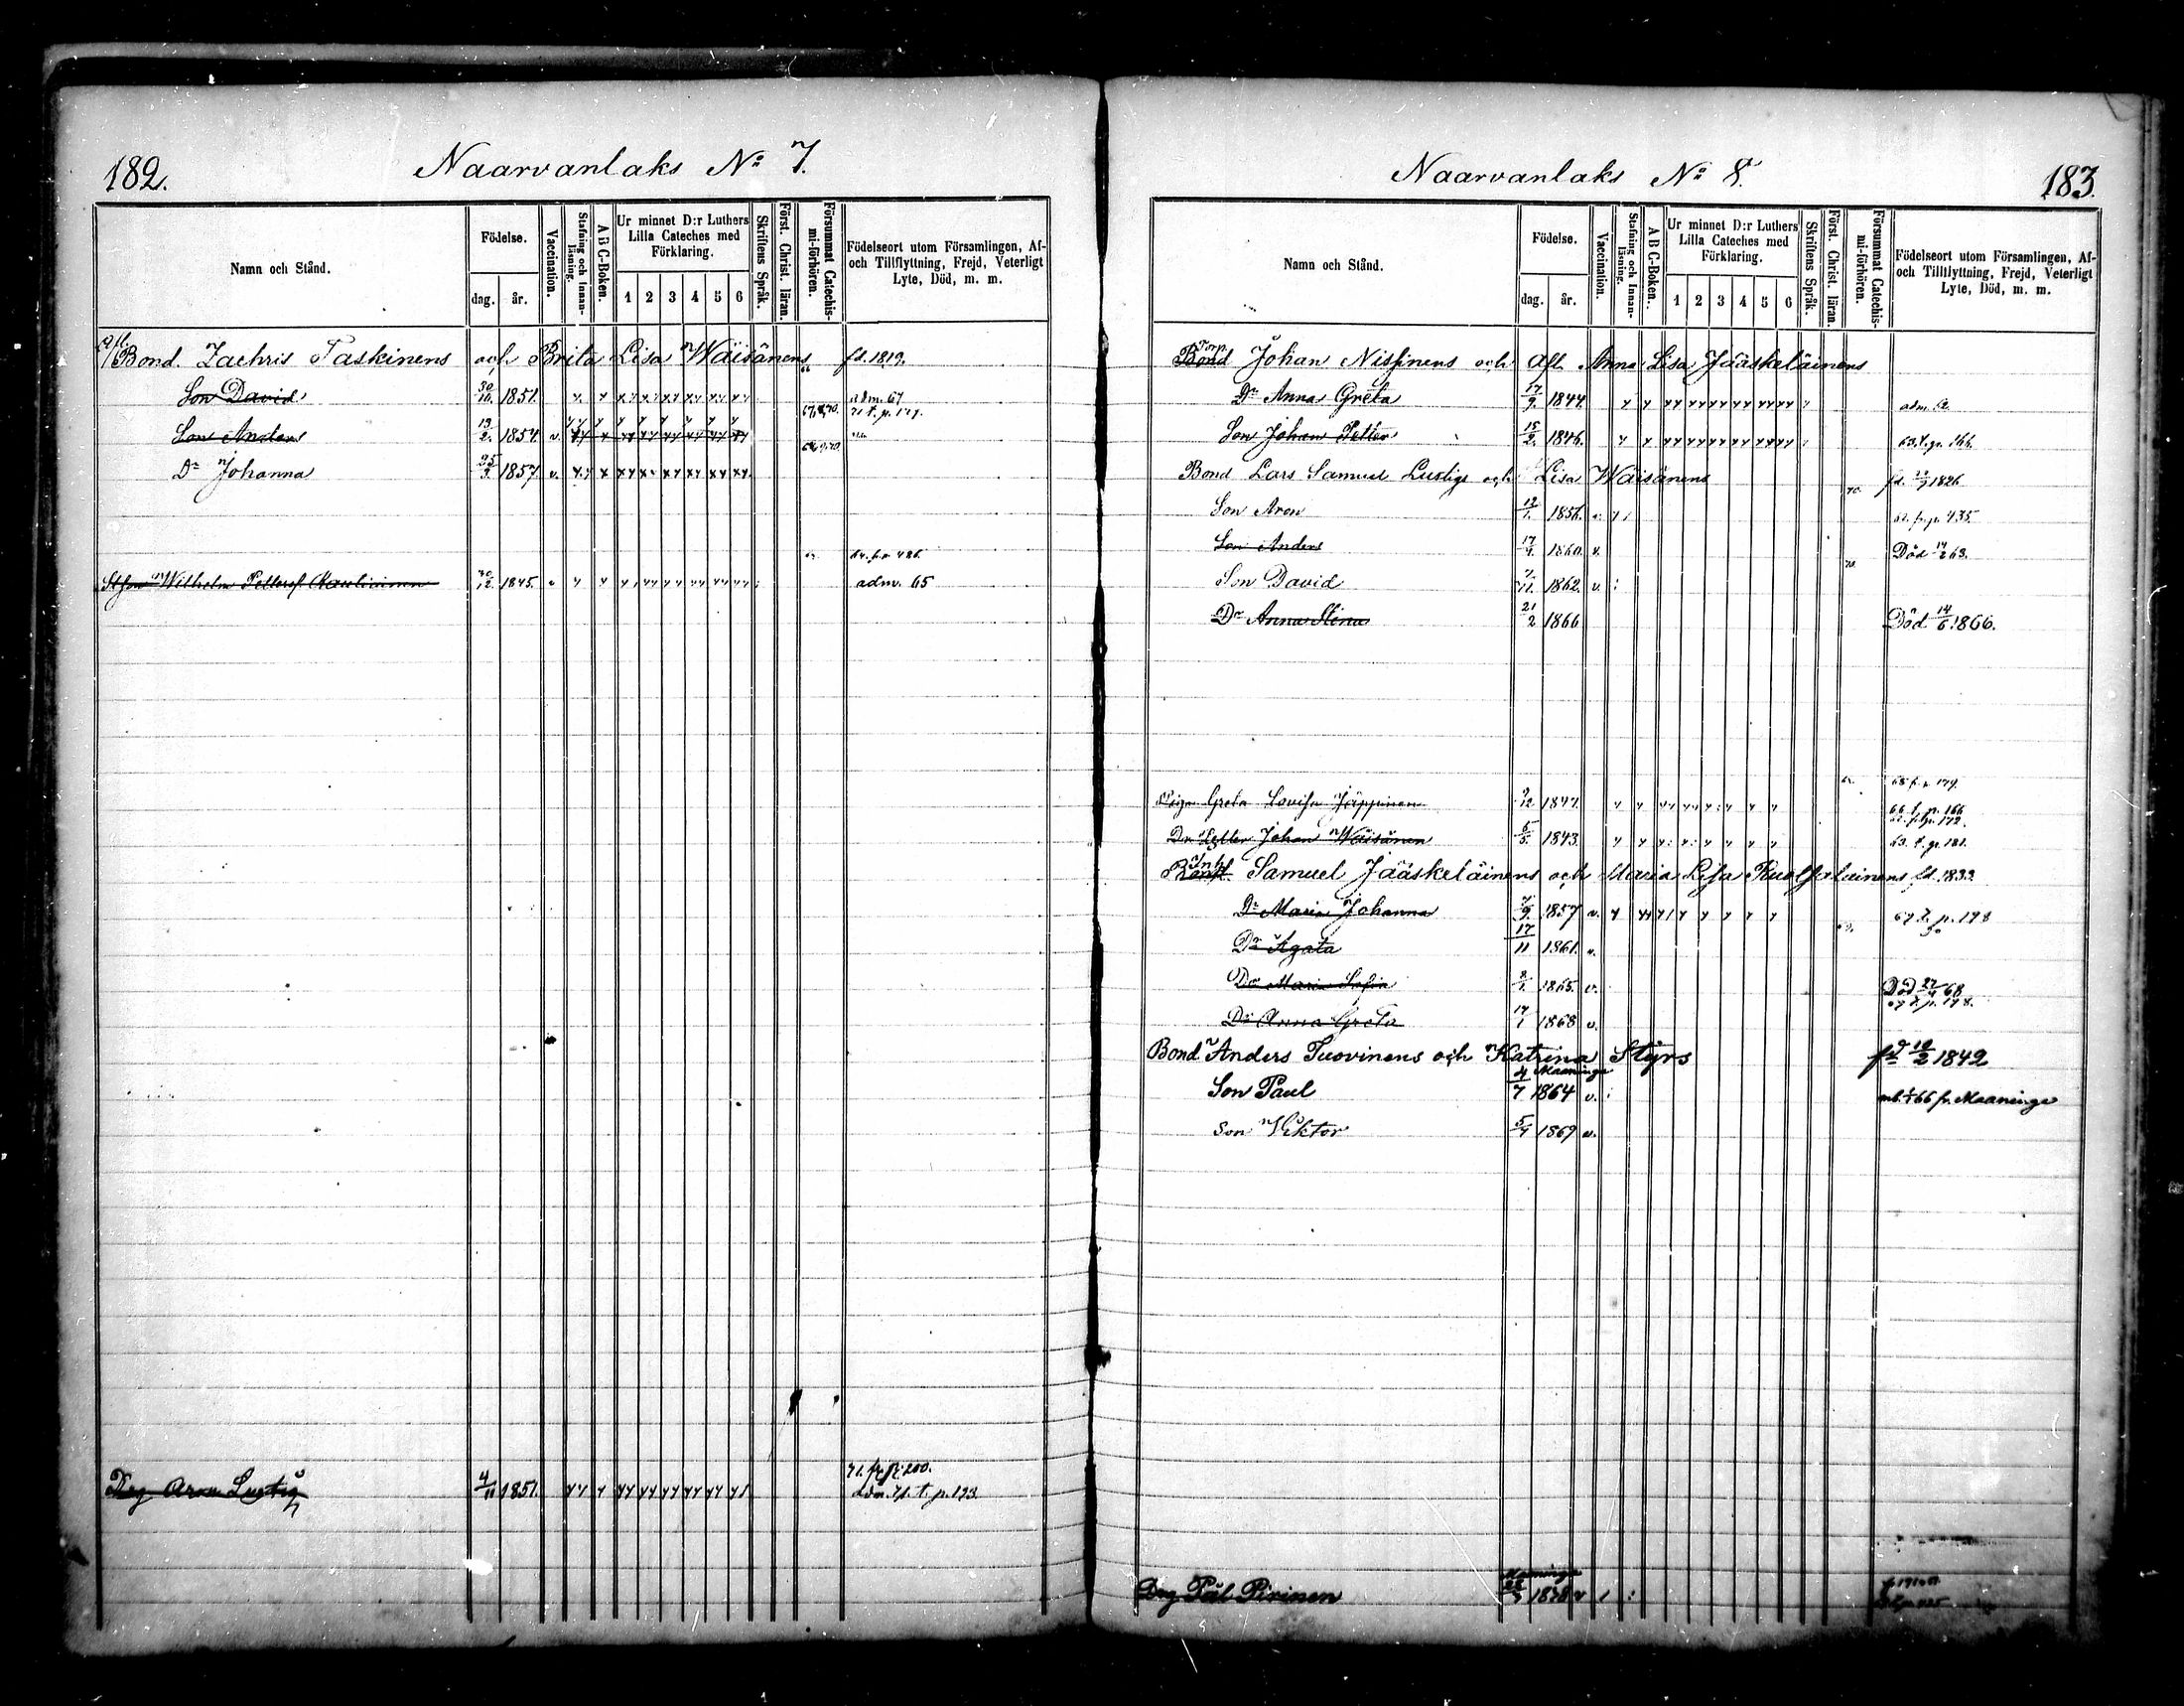 182.
Naarvanlaks № 7.
Namn och Stånd.
Födelse.
dag.
år.
Vaccination.
Stafning och Innanläsning.
A B C-Boken.
Ur minnet D:r Luthers Lilla Cateches med Förklaring.
1 2 3 4 5 6
Skriftens Språk.
Först. Christ. läran.
Försummat Catechismi-förhören.
Födelseort utom Församlingen, Af- och Tillflyttning, Frejd, Veterligt Lyte, Död, m. m.
Afl. Bond. Zachris Taskinens och Brita Lisa Wäisänens fd. 1819.
Son David 30/10. 1851. adm. 67
71 t. p. 179.
Son Anders 19/2. 1854. v.
Dr Johanna 25/3 1857. v.
64. fr. p. 486.
Wilhelm Pettersf. 30/12 1845. adm. 65
71. fr. p. 200.
Drg Aron Lustig 4/11 1851. adm. 71. t. p. 193.
183.
Naarvanlaks № 8.
Namn och Stånd.
Födelse.
dag.
år.
Vaccination.
Stafning och Innanläsning.
A B C-Boken.
Ur minnet D:r Luthers Lilla Cateches med Förklaring.
1 2 3 4 5 6
Skriftens Språk.
Först. Christ. läran.
Försummat Catechismi-förhören.
Födelseort utom Församlingen, Af- och Tillflyttning, Frejd, Veterligt Lyte, Död, m. m.
Torp.
Bond Johan Nissinens och Afl. Anna Lisa Jääskeläinens
Dr Anna Greta 17/9. 1844. adm.
Son Johan Petter 15/2. 1846. 63. t. p. 166.
Bond Lars Samuel Lustigs och Lisa Wäisänens fd. 1826
Son Aron 12/1. 1856. v. 62. fr. p. 435.
Son Anders 17/4. 1860. v. Död 14/2 63.
Son David 7/11. 1862. v.
Dr Anna Stina 21/2 1866 Död 14/6. 1866.
65 fr. p. 179.
Piga Greta Lovisa Jäppinen 9/12 1847. 66. t. p. 166
Dr Petter Johan Wäisänen 5/5. 1843. 63. t. p. 181.
Inh.
Bond. Samuel Jääskeläinens och Maria Lisa Ruotsalainens fd. 1833
Dr Maria Johanna 7/9 1857 v. 69 t. p. 198
Dr Agata 17/11 1861. v.
Dr Maria Sofia 3/1 1865. v. Död 27/4 68
Dr Anna Greta 17/1 1868 v. 69 t. p. 198.
Bond. Anders Tuovinens och Katrina Styrs fd 10/2 1842
Maaninga
Son Paul 4/7 1864 v. inb. 66 fr. Maaninga
Son Viktor 5/4 1869 v.
Maaninga
Drg Pål Pirinen 1838 v